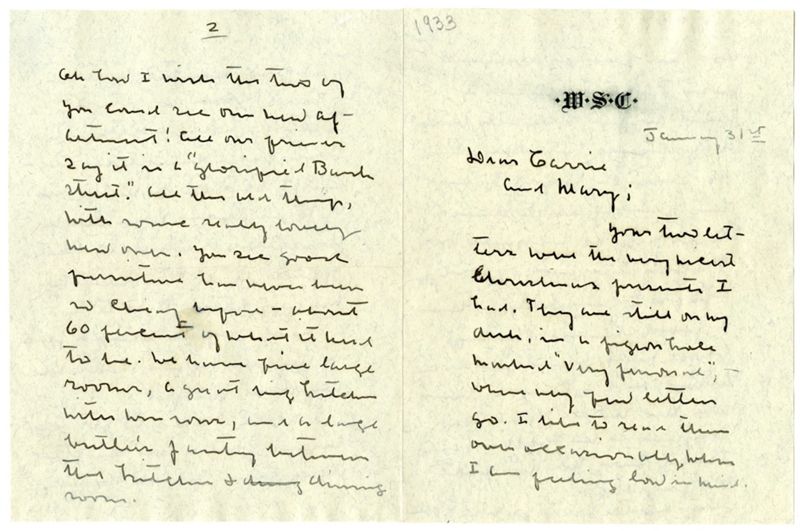 1933
·W·S·C·
January 31st
Dear Carrie
and Mary;
Your two let-
ters were the very nicest
Christmas presents I
had. They are still on my
desk, in a pigeon hole
marked "very personal", -
where very few letters
go. I like to read them
over occasionally, when
I am feeling low in mind.
2
Oh how I wish the two of
you could see our new ap-
artment! All our friends
say it is a "glorified Bank
Street." All the old things,
with some really lovely
new ones. You see good
furniture has never been
so cheap before - about
60 percent of what it used
to be. We have five large
rooms, a great big kitchen
with, and a large
butler's pantry between
the kitchen & dining
room.